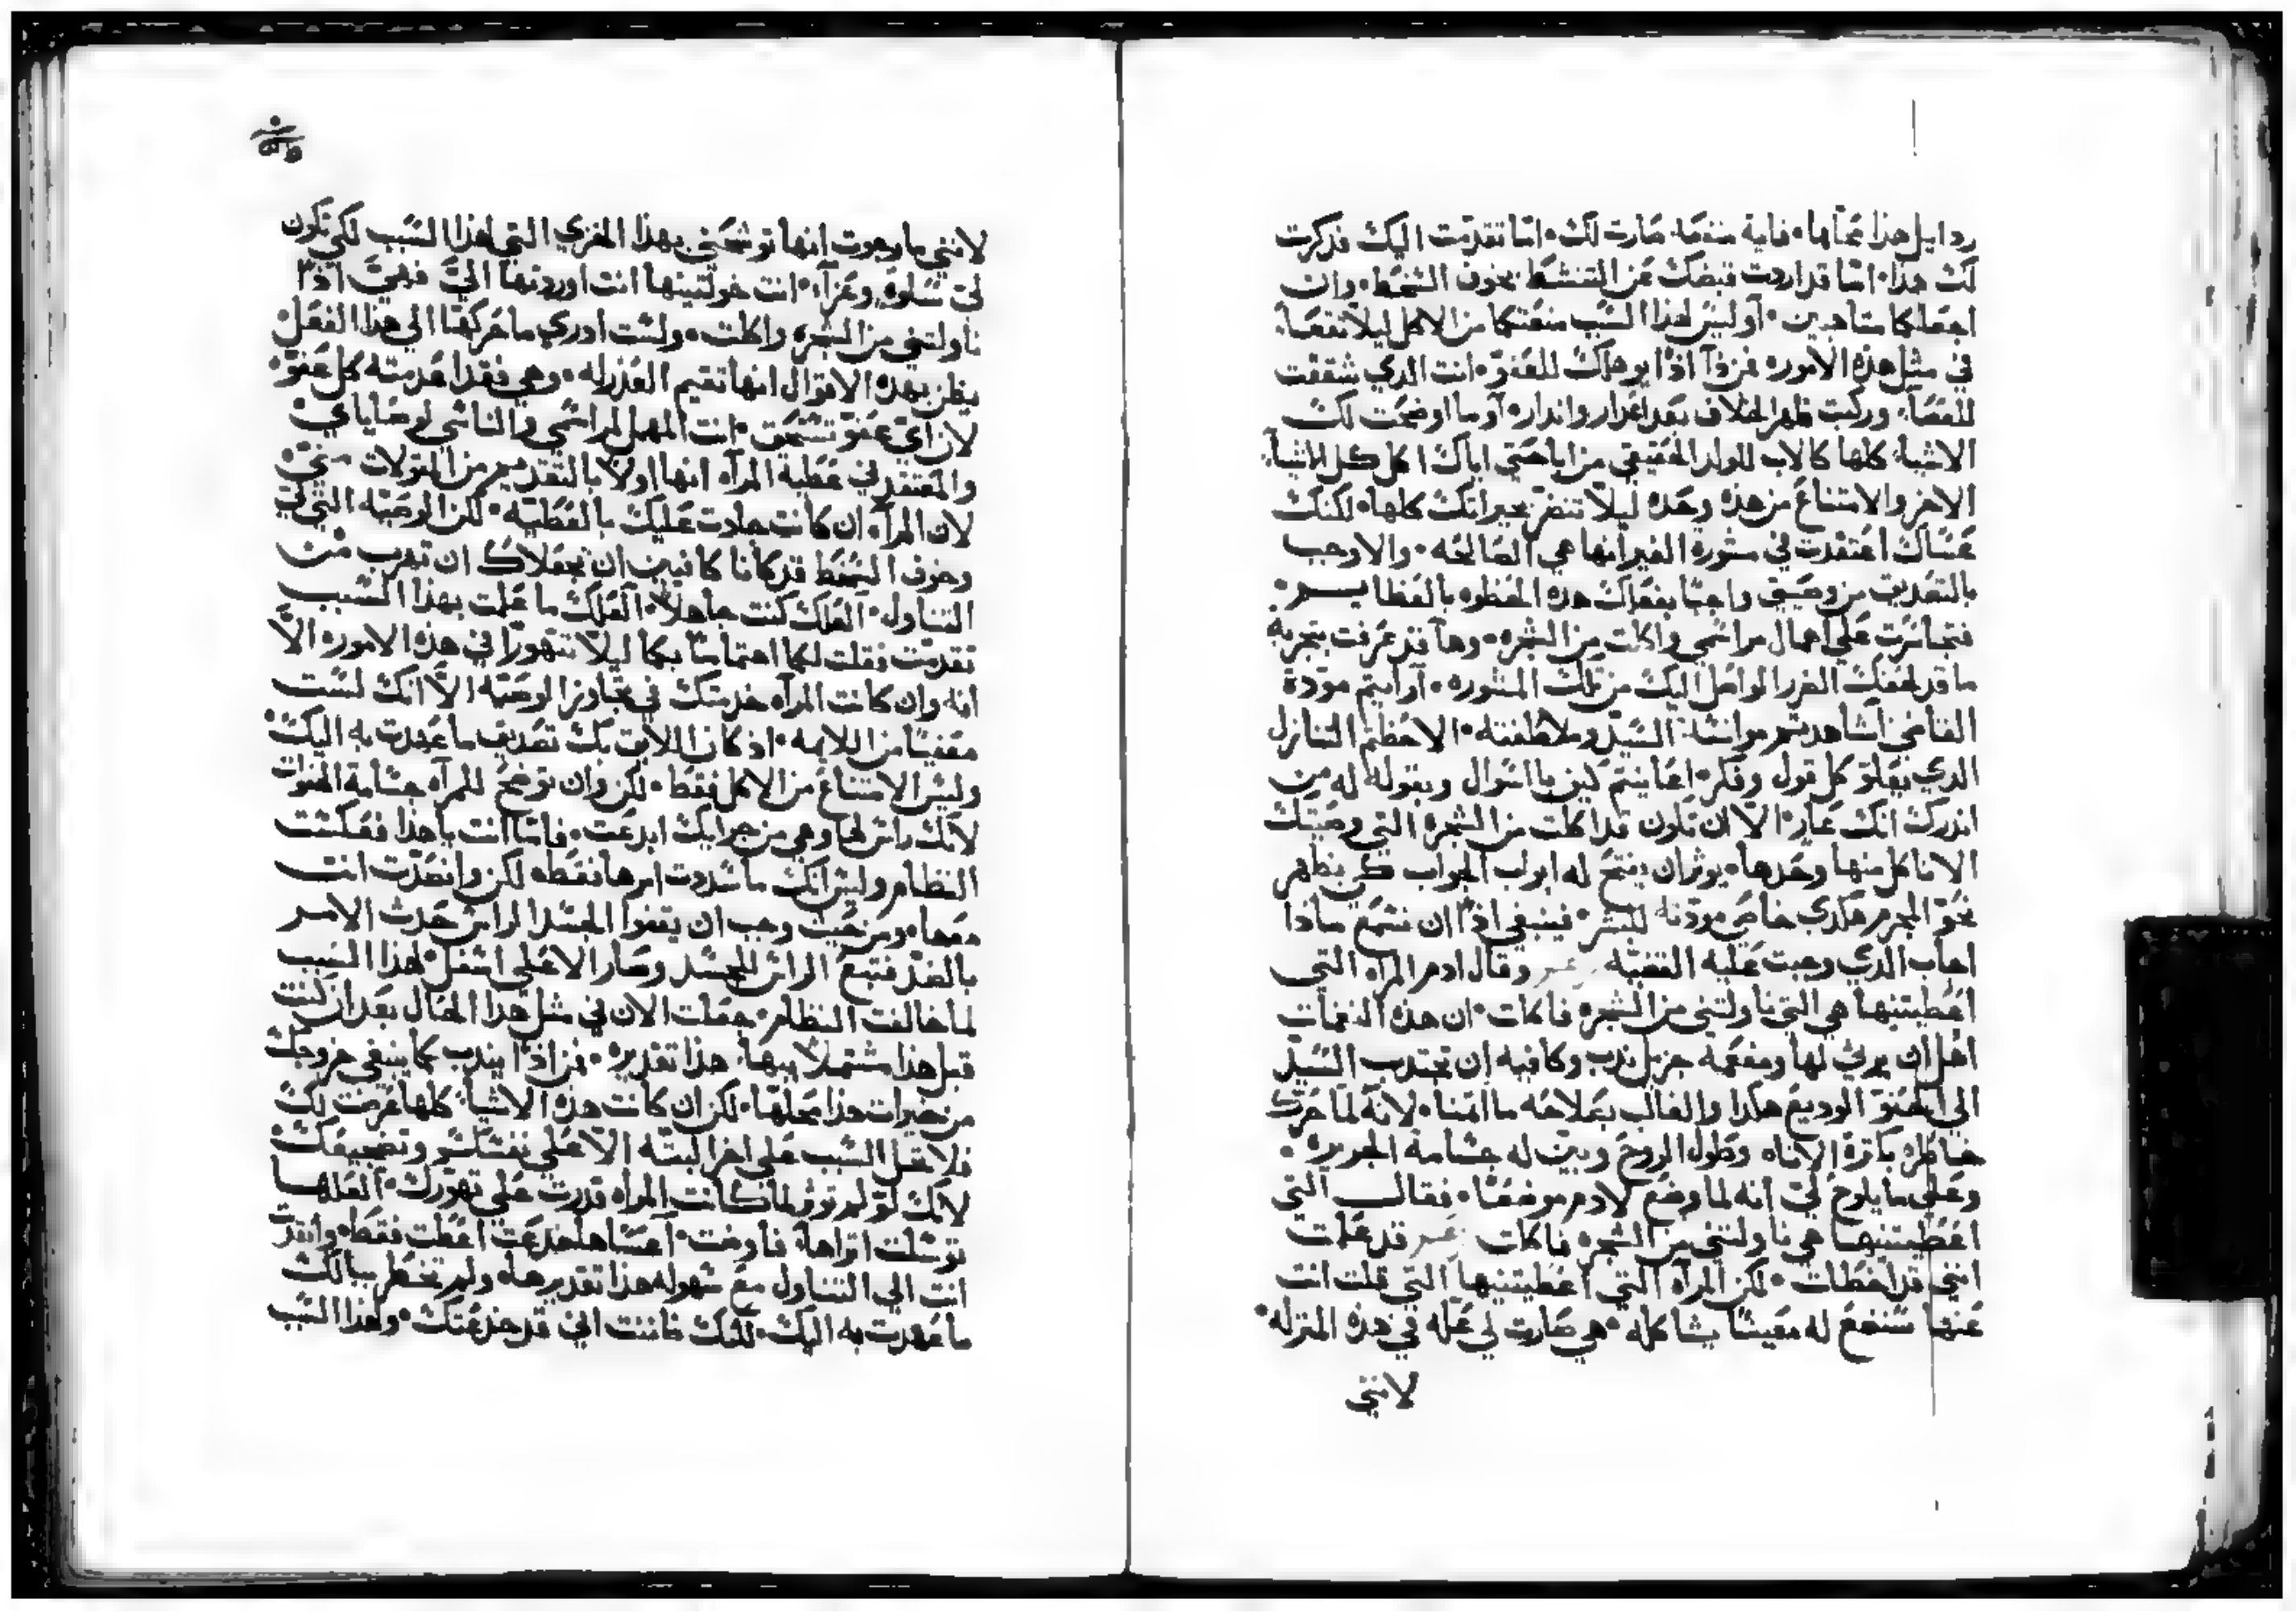 ردايل هذا محلها • فاية منفعة صارت لك • اما تقدمت اليك فذكرت
لك هذا • اما قد اردت قبضك عن التنشط بخوف السخط • وان
اجعلكما متاهبين • اوليس لهذا السبب منعتكما من الاكل ليلا تقعا •
في مثل هذه الامور • فمن ذا اذا يوهلك للعفو • انت الذي شققت
للعصا • وركبت ظهر الخلاف بعد اعذار وانذار • اوما اوضحت لك
الاشيا كلها كالاب للولد الحقيقي من اباحتي اياك اكل كل الاشيا •
الاخر والامتناع من هذه وحده ليلا تنضر بخيراتك كلها • لكنك
عساك اعتقدت في مشورة الغير انها هي الصالحه • والاوجب
بالتصديق من وصيتي واجبا بفعلك هذه المحظوره بالعظايم •
فتجاسرت على اهمال مراسمي واكلت من الشجره • وها قد عرفت بتجربه
ما قد لحقك الضرر الواصل اليك من تلك المشوره • ارايتم مودة
القاضي اشاهدتم موانسة السيد وملاطفته • الاحظتم التنازل
الذي يفوق كل قول وفكر • اعاينتم كيف بالسوال وبقوله له من
انذرك انك عار • الا ان تكون قد اكلت من الشجرة التي وصيتك
الا تاكل منها وحدها • يوثر ان يفتح له ابواب الجواب كي يظهر
نحو المجرم هكذي خاصي مودته للبشر • فينبغي اذا ان نسمع ماذا
اجاب الذي وجبت عليه القضيه وقال ادم المراه التي
اعطيتنيها هي التي ناولتني من الشجره فاكلت • ان هذه النغمات
اهل ان يرثى لها ومفعمة جزيل ندب وكافيه ان تجتذب السيد
الى الحنو الوديع هكذا والغالب بصلاحه ماثمنا • لانه لما حرك
خاطره بكثرة الاناه وطول الروح وبين له جسامة الجريره •
وعلى ما يلوح لي انه لما وضع لادم موضعا • فقال التي
اعطيتنيها هي ناولتني من الشجره فاكلت قد علمت
انني قد اخطات • لكن المراه التي اعطيتنيها التي قلت انت
عنها سنضع له معينا يشاكله • هي صارت لي عله في هذه المنزله •
لانني
لانني ما رجوت انها توشحني بهذا الخزي التي لهذا السبب لكي تكون
لي سلوه وعزآء • انت خولتنيها انت اوردتها الي فهي اذا
ناولتني من الشجره واكلت • ولست ادري ما حركها الى هذا الفعل •
يظن بهذه الاقوال انها تقيم العذر له • وهي فقد اعدمته كل عفو •
لان اي عفو تستحق • انت المهمل لمراسمي والناسي لوصاياي •
والمعتقد في عطية المراه انها اولا بالتقديم من المقولات مني •
لان المراه ان كانت جادت عليك بالعطيه • لكن الوصيه التي لي
وخوف السخط قد كانا كافيين ان يجعلاك ان تهرب من
التناول • العلك كنت جاهلا • العلك ما علمت بهذا السبب
تقدمت فقلت لكما اهتماما بكما ليلا تتهورا في هذه الامور • الا
انه وان كانت المراه خدمتك في تجاوز الوصيه الا انك لست
معفيا من اللايمه • اذ كان اللايق بك تصديق ما عهدت به اليك •
وليس الامتناع من الاكل فقط • لكن وان توضح للمراه جسامة الهفوات
لانك راس لها وهي من جرايك ابدعت • فاما انت يا هذا فعكست
النظام وليس انك ما سددت امرها فقط • لكن وانصدت انت
معها • ومن حيث وجب ان يقفوا الجسد الراس حدث الامر
بالضد فتبع الراس للجسد وصار الاعلى اسفل • لهذا السبب
لما خالفت النظام • جعلت الان في مثل هذا الحال بعد ان كنت
قبل هذا مشتملا بهاء هذا تقديره • فمن اذا يندب كما ينبغي خروجك
من خيرات هذا محلها • لكن ان كانت هذه الاشيا كلها عرضت لك
فلا تحل السبب على اخر البته الا على نفسك وتضجيعك •
لانك لو لم توثر لما كانت المراه قدرت على تهورك • العلها
توسلت اتراها • فاوضت • اعساها خدعت اعطت فقط • وانقدت
انت الى التناول مع سهوله هذا تقديرها • ولم تخطر ببالك
ما عهدت به اليك • لكنك فاننت اني قد خدعتك • ولهذا السبب